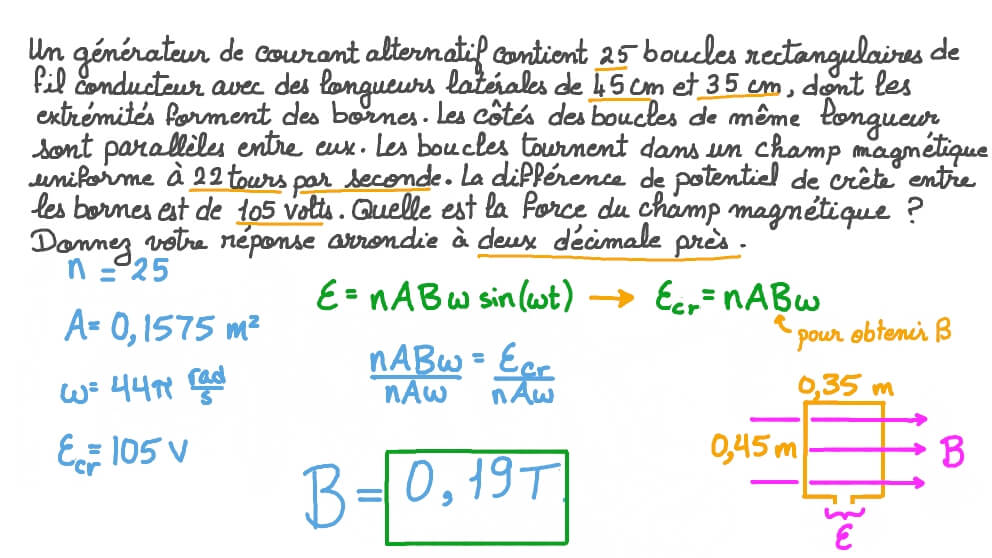 Un générateur de courant alternatif contient 25 boucles rectangulaires de
fil conducteur avec des longueurs latérales de 45 cm et 35 cm, dont les
extrémités forment des bornes. Les côtés des boucles de même longueur
sont parallèles entre eux. Les boucles tournent dans un champ magnétique
uniforme à 22 tours par seconde. La différence de potentiel de crête entre
les bornes est de 105 volts. Quelle est la force du champ magnétique ?
Donnez votre réponse arrondie à deux décimale près.
n = 25
A = 0,1575 m²
ω = 44π rad/s
Ɛcr = 105 V
Ɛ = nABω sin(ωt) → Ɛcr = nABω
pour obtenir B
nABω/nAω = Ɛcr/nAω
B = 0,19T
0,35 m
0,45 m
B
Ɛ